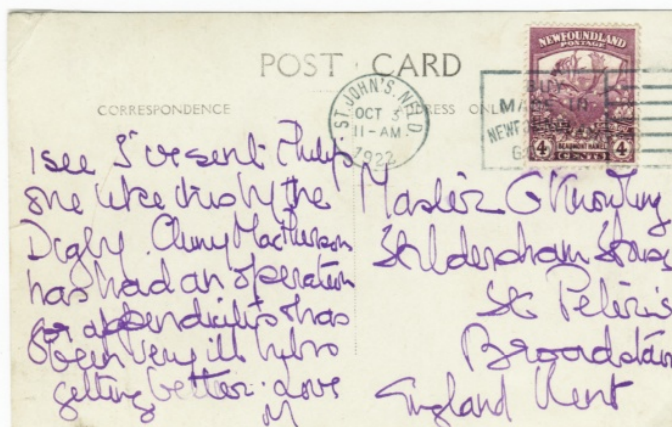 POST CARD
CORRESPONDENCE
ADDRESS ONLY
ST. JOHN'S. NFLD.
OCT 3
11-AM
1922
MADE IN
NEWFOUNDLAND
POSTAGE
4 CENTS 4
BEAUMONT HAMEL
I see I've sent Philip
one like this by the
Digby. Cluny MacPherson
has had an operation
for appendicitis & has
been very ill but is
getting better. Love
M
Master G Knowling
Stildersham House
St Peter's
Broadstairs
England Kent